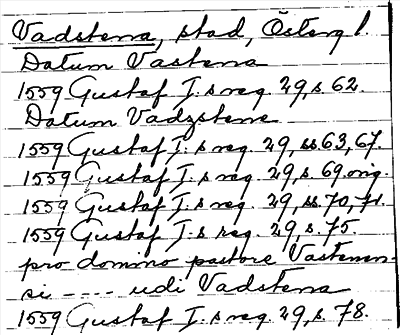 Vadstena, stad, Österg l.
Datum Vastena
1559 Gustaf I:s reg. 29, s. 62.
Datum Vadzstene
1559 Gustaf I:s reg. 29, ss. 63, 67.
1559 Gustaf I:s reg. 29, s. 69 orig.
1559 Gustaf I:s reg. 29, ss. 70, 71.
1559 Gustaf I:s reg. 29, s. 75.
pro domino pastore Vastenen-
si - - - - udi Vadstena
1559 Gustaf I:s reg. 29, s. 78.